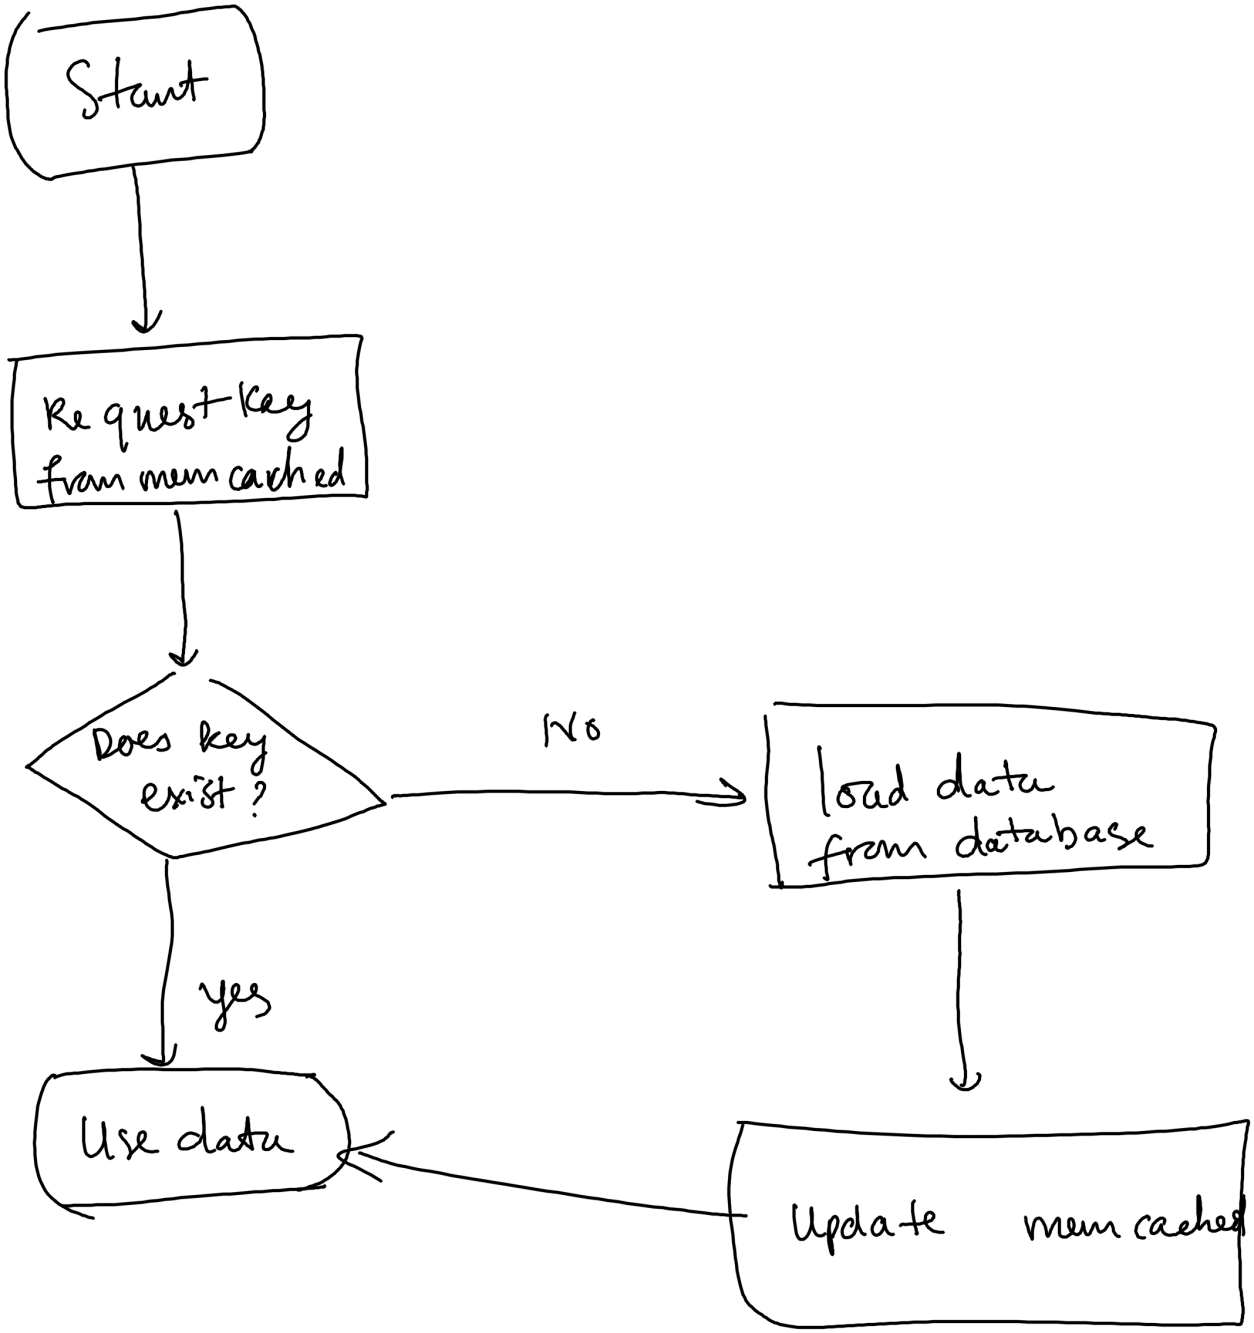 Start
Request key
from memcached
Does key
exist?
No
load data
from database
yes
Use data
Update memcached